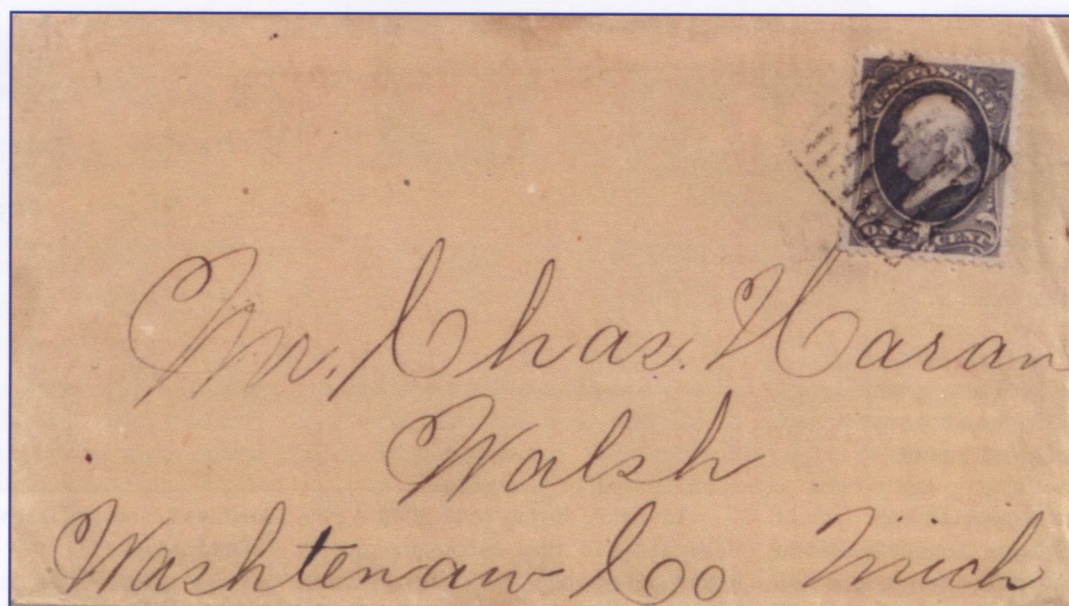 U.S. POSTAGE
ONE 1 CENT
Mr. Chas. Haran
Walsh
Washtenaw Co Mich